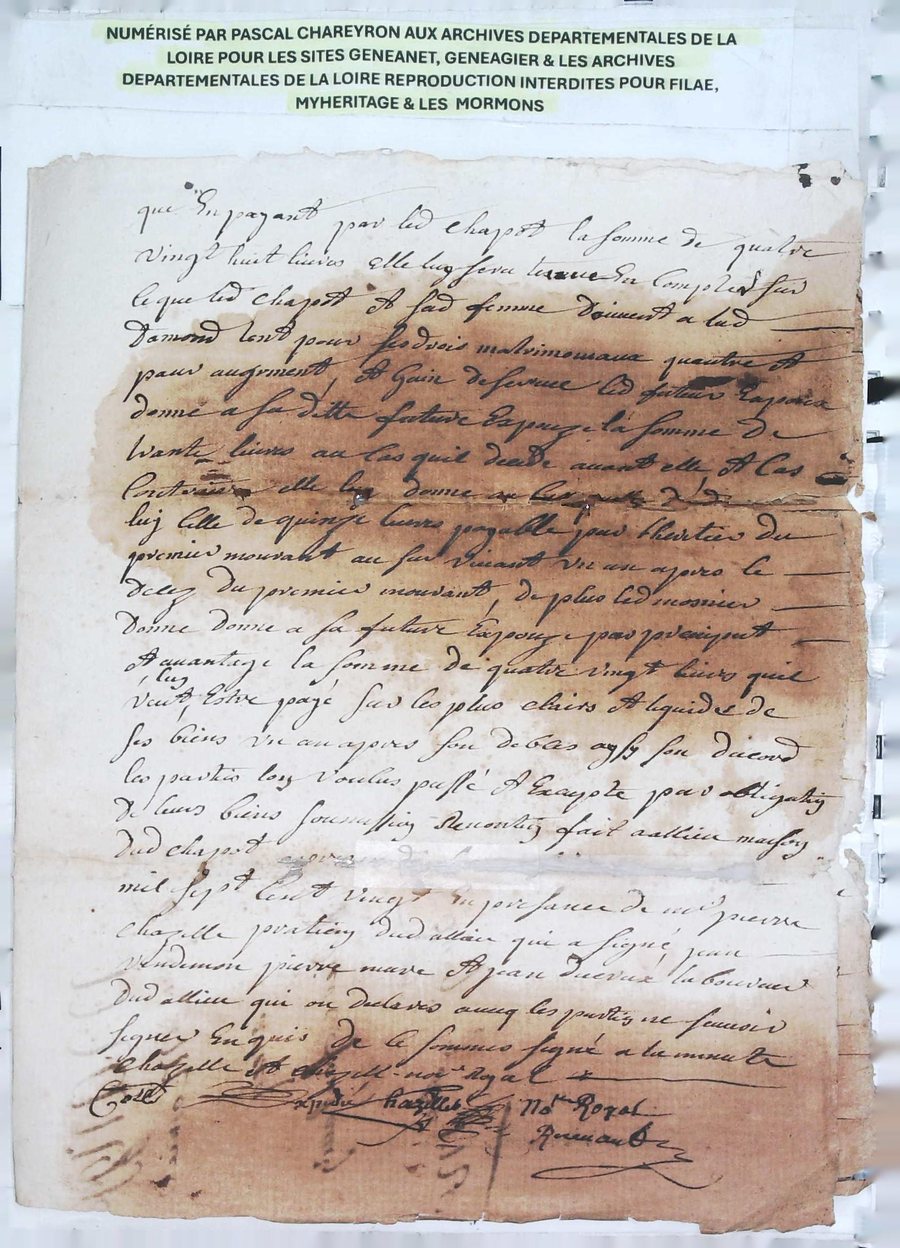 NUMÉRISÉ PAR PASCAL CHAREYRON AUX ARCHIVES DEPARTEMENTALES DE LA
LOIRE POUR LES SITES GENEANET, GENEAGIER & LES ARCHIVES
DEPARTEMENTALES DE LA LOIRE REPRODUCTION INTERDITES POUR FILAE,
MYHERITAGE & LES MORMONS
que En payant par led chapot la somme de quatre
vingt huit livres Elle luy sera tenue En Compte sur
Ce que led chapot Et sad femme Doivent a lad
pour ses drois matrimoniaux quantre Et
pour augment Et Gain de survie led futeur Espoux
donne a sa ditte future Espouze la somme de
trante livres au Cas quil decede avant elle Et Cas
Contraire elle luy donne au
luy Celle de quinze livres payable par lheritier du
premier mourant au survivant un an apres le
decez du premier mourant, de plus led mosnier
Donne Donne a sa future Espouze par preciput
Et avantage la somme de quatre vingt livres quil
luy
veut Estre payé sur les plus clairs Et liquides de
ses biens un an apres son deces aynsy son dacord
les partis lon voulus passé Et Excepté par obligation
De leurs biens soumission Renontion fait a allieu maison
Dud chapot
mil sept Cent vingt En presance de mr pierre
chazelle pratitien dud allieu qui a signé, jean
vendemon pierre mure Et jean laboureur
Dud allieu qui on declares avecq les partis ne scavoir
signer Enquis de Ce sommes signé a la minute
Chazelle Et chazelle nore Royal
Coll Expédié Chazelles Nore Royal